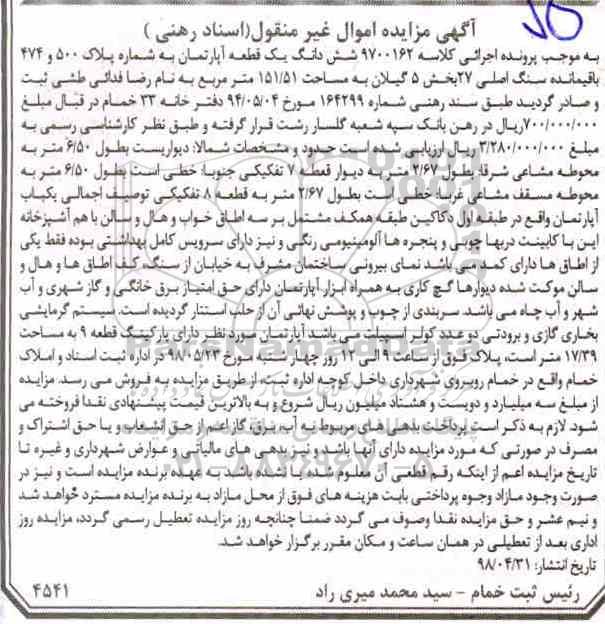 آگهی مزایده اموال غیر منقول(اسناد رهنی )
به موجب پرونده اجرائی کلاسه ۹۷۰۰۱۶۲ شش دانگ یک قطعه آپارتمان به شماره پلاک ۵۰۰ و ۴۷۴
باقیمانده سنگ اصلی ۲۷بخش ۵ گیلان به مساحت ۱۵۱/۵۱ متر مربع به نام رضا فدائی طشی ثبت
و صادر گردید طبق سند رهنی شماره ۱۶۴۲۹۹ مورخ ۹۴/۰۵/۰۴ دفتر خانه ۳۳ خمام در قبال مبلغ
۷۰۰/۰۰۰/۰۰۰ریال در رهن بانک سپه شعبه گلسار رشت قرار گرفته و طبق نظر کارشناسی رسمی به
مبلغ ۳/۲۸۰/۰۰۰/۰۰۰ ریال ارزیابی شده است حدود و مشخصات شمالا: دیواریست بطول ۶/۵۰ متر به
محوطه مشاعی شرقا: بطول ۲/۶۷ متر به دیوار قطعه ۷ تفکیکی جنوبا: خطی است بطول ۶/۵۰ متر به
محوطه مسقف مشاعی غربا: خطی است بطول ۲/۶۷ متر به قطعه ۸ تفکیکی توصیف اجمالی یکباب
آپارتمان واقع در طبقه اول دکاکین طبقه همکف مشتمل بر سه اطاق خواب و هال و سالن با هم آشپزخانه
این با کابینت دربها چوبی و پنجره ها آلومینیومی رنگی و نیز دارای سرویس کامل بهداشتی بوده فقط یکی
از اطاق ها دارای کمد می باشد نمای بیرونی ساختمان مشرف به خیابان از سنگ، کف اطاق ها و هال و
سالن موکت شده دیوارها گچ کاری به همراه ابزار آپارتمان دارای حق امتیاز برق خانگی و گاز شهری و آب
شهر و آب چاه می باشد. سربندی از چوب و پوشش نهائی آن از حلب استتار گردیده است. سیستم گرمایشی
بخاری گازی و برودتی دو عدد کولر اسپیلت می باشد آپارتمان مورد نظر دارای پارکینگ قطعه ۹ به مساحت
۱۷/۳۹ متر است، پلاک فوق از ساعت ۹ الی ۱۲ روز چهارشنبه مورخ ۹۸/۰۵/۲۳ در اداره ثبت اسناد و املاک
خمام واقع در خمام روبروی شهرداری داخل کوچه اداره ثبت، از طریق مزایده به فروش می رسد. مزایده
از مبلغ سه میلیارد و دویست و هشتاد میلیون ریال شروع و به بالاترین قیمت پیشنهادی نقدا فروخته می
شود. لازم به ذکر است پرداخت بدهی های مربوط به آب، برق، گاز اعم از حق انشعاب و یا حق اشتراک و
مصرف در صورتی که مورد مزایده دارای آنها باشد و نیز بدهی های مالیاتی و عوارض شهرداری و غیره تا
تاریخ مزایده اعم از اینکه رقم قطعی آن معلوم شده یا نشده باشد به عهده برنده مزایده است و نیز در
صورت وجود مازاد وجوه پرداختی بابت هزینه های فوق از محل مازاد به برنده مزایده مسترد خواهد شد
و نیم عشر و حق مزایده نقدا وصول می گردد ضمنا چنانچه روز مزایده تعطیل رسمی گردد، مزایده روز
اداری بعد از تعطیلی در همان ساعت و مکان مقرر برگزار خواهد شد.
تاریخ انتشار: ۹۸/۰۴/۳۱
رئیس ثبت خمام - سید محمد میری راد
۴۵۴۱